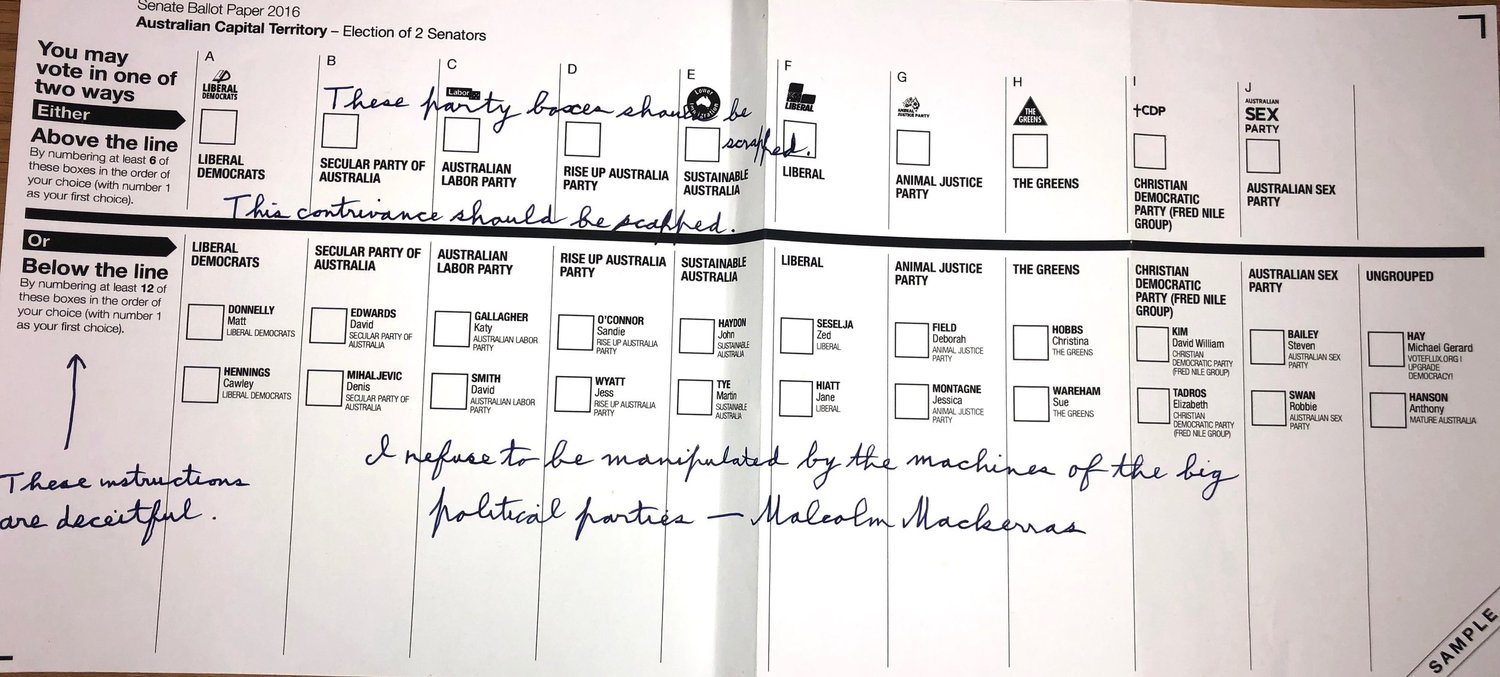 Senate Ballot Paper 2016
Australian Capital Territory – Election of 2 Senators
You may
vote in one of
two ways
Either
Above the line
By numbering at least 6 of
these boxes in the order of
your choice (with number 1
as your first choice).
A
LIBERAL
DEMOCRATS
LIBERAL
DEMOCRATS
B
SECULAR PARTY OF
AUSTRALIA
C
Labor
AUSTRALIAN
LABOR PARTY
D
RISE UP AUSTRALIA
PARTY
E
Lower
SUSTAINABLE
AUSTRALIA
F
LIBERAL
LIBERAL
G
ANIMAL
JUSTICE PARTY
ANIMAL JUSTICE
PARTY
H
THE
GREENS
THE GREENS
I
CDP
CHRISTIAN
DEMOCRATIC
PARTY (FRED NILE
GROUP)
J
AUSTRALIAN
SEX
PARTY
AUSTRALIAN SEX
PARTY
These party boxes should be
scrapped.
This contrivance should be scapped.
Or
Below the line
By numbering at least 12 of
these boxes in the order of
your choice (with number 1
as your first choice).
LIBERAL
DEMOCRATS
DONNELLY
Matt
LIBERAL DEMOCRATS
HENNINGS
Cawley
LIBERAL DEMOCRATS
SECULAR PARTY OF
AUSTRALIA
EDWARDS
David
SECULAR PARTY OF
AUSTRALIA
MIHALJEVIC
Denis
SECULAR PARTY OF
AUSTRALIA
AUSTRALIAN
LABOR PARTY
GALLAGHER
Katy
AUSTRALIAN LABOR
PARTY
SMITH
David
AUSTRALIAN LABOR
PARTY
RISE UP AUSTRALIA
PARTY
O'CONNOR
Sandie
RISE UP AUSTRALIA
PARTY
WYATT
Jess
RISE UP AUSTRALIA
PARTY
SUSTAINABLE
AUSTRALIA
HAYDON
John
SUSTAINABLE
AUSTRALIA
TYE
Martin
SUSTAINABLE
AUSTRALIA
LIBERAL
SESELJA
Zed
LIBERAL
HIATT
Jane
LIBERAL
ANIMAL JUSTICE
PARTY
FIELD
Deborah
ANIMAL JUSTICE
PARTY
MONTAGNE
Jessica
ANIMAL JUSTICE
PARTY
THE GREENS
HOBBS
Christina
THE GREENS
WAREHAM
Sue
THE GREENS
CHRISTIAN
DEMOCRATIC
PARTY (FRED NILE
GROUP)
KIM
David William
CHRISTIAN
DEMOCRATIC PARTY
(FRED NILE GROUP)
TADROS
Elizabeth
CHRISTIAN
DEMOCRATIC PARTY
(FRED NILE GROUP)
AUSTRALIAN SEX
PARTY
BAILEY
Steven
AUSTRALIAN SEX
PARTY
SWAN
Robbie
AUSTRALIAN SEX
PARTY
UNGROUPED
HAY
Michael Gerard
VOTEFLUX.ORG |
UPGRADE
DEMOCRACY!
HANSON
Anthony
MATURE AUSTRALIA
These instructions
are deceitful.
I refuse to be manipulated by the machines of the big
political parties — Malcolm Mackerras
SAMPLE